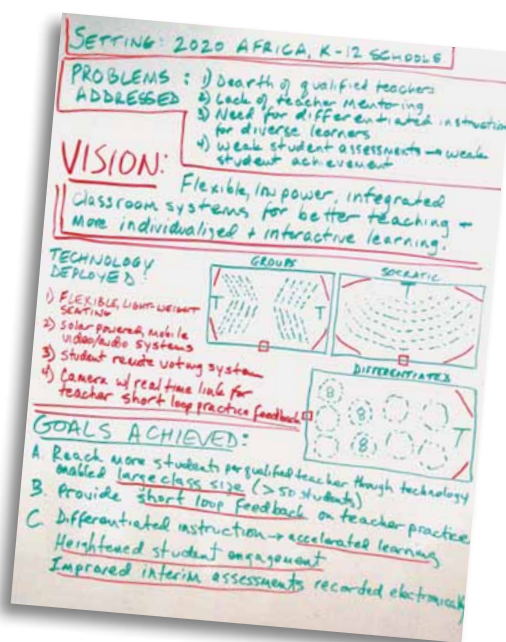 SETTING: 2020 AFRICA, K-12 SCHOOLS
PROBLEMS ADDRESSED:
1) Dearth of qualified teachers
2) Lack of teacher mentoring
3) Need for differentiated instruction
for diverse learners
4) Weak student assessments → weak
student achievement
VISION:
Flexible, low power, integrated
classroom systems for better teaching +
more individualized + interactive learning.
TECHNOLOGY
DEPLOYED:
1) FLEXIBLE, LIGHT-WEIGHT
SEATING
2) Solar powered, mobile
video/audio systems
3) Student remote voting system
4) Camera w/ real time link for
teacher short loop practice feedback
GROUPS
T
T
SOCRATIC
T
DIFFERENTIATED
8
8
8
T
GOALS ACHIEVED:
A. Reach more students per qualified teacher though technology
enabled large class size (> 50 students)
B. Provide short loop feedback on teacher practice
C. Differentiated instruction → accelerated learning
Heightened student engagement
Improved interim assessments recorded electronically